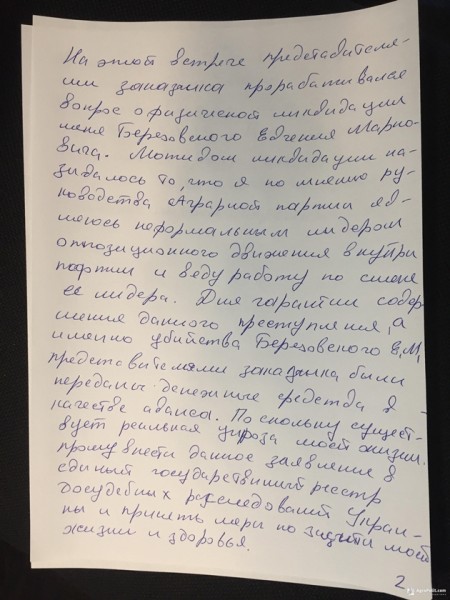 На этой встрече представителя-
ми заказчика прорабатывался
вопрос о физической ликвидации
меня Березовского Евгения Марко-
вича. Мотивом ликвидации на-
зывалось то, что я по мнению ру-
ководства Аграрной партии яв-
ляюсь неформальным лидером
оппозиционного движения внутри
партии и веду работу по смене
ее лидера. Для гарантии совер-
шения данного преступления, а
именно убийства Березовского Е.М,
представителями заказчика были
переданы денежные средства в
качестве аванса. Поскольку сущест-
вует реальная угроза моей жизни.
прошу внести данное заявление в
единый государственный реестр
досудебных расследований Украи-
ны и принять меры по защите моей
жизни и здоровья.
2